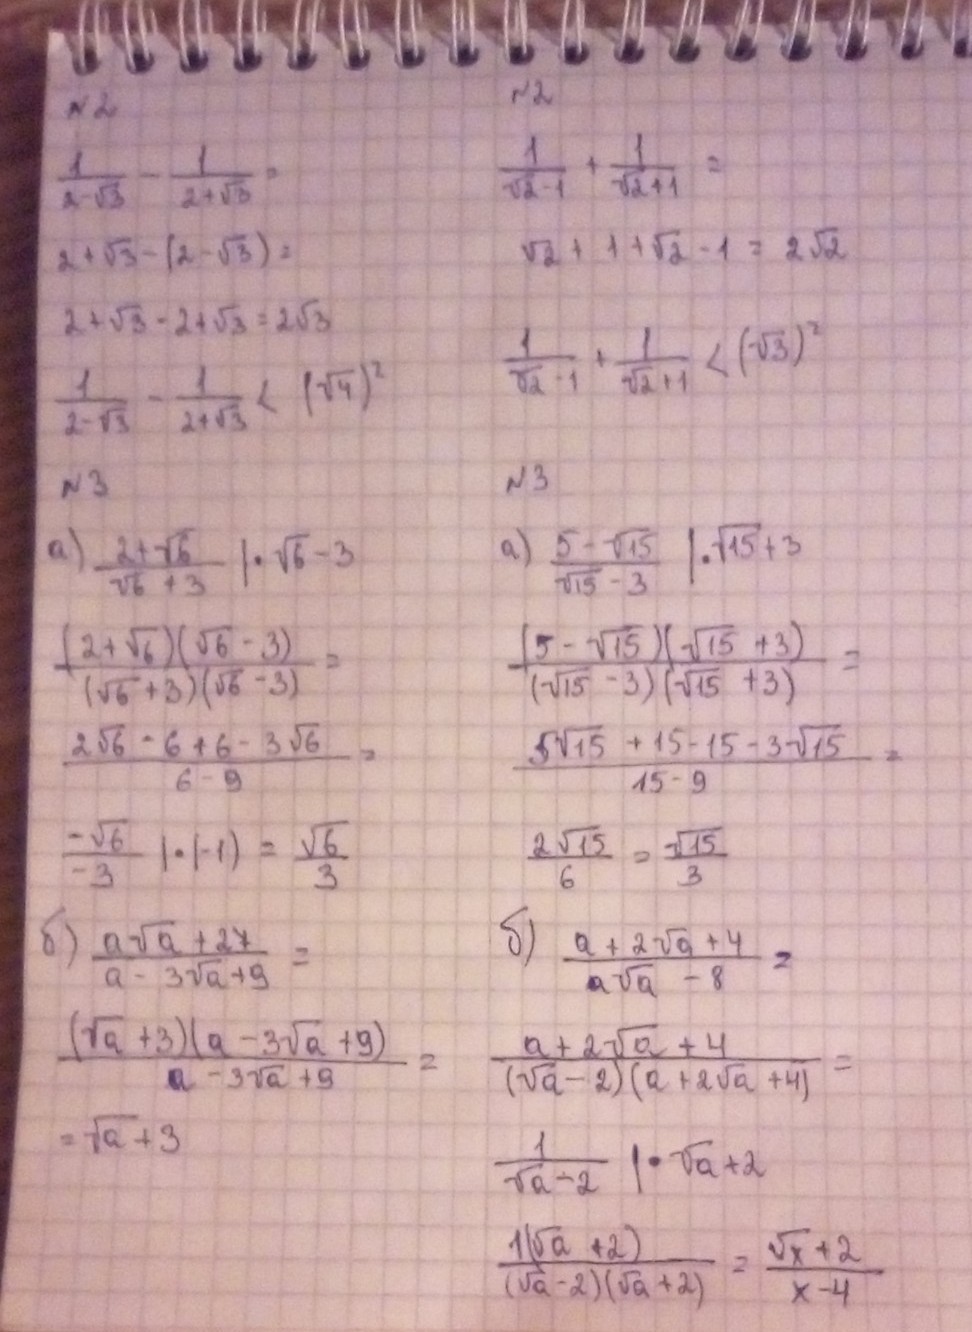 №2
1/(2-√3) - 1/(2+√3) =
2+√3-(2-√3) =
2+√3-2+√3=2√3
1/(2-√3) - 1/(2+√3) < (√4)²
№3
а) (2+√6)/(√6+3) |·√6-3
(2+√6)(√6-3)/(√6+3)(√6-3) =
(2√6-6+6-3√6)/(6-9) =
-√6/-3 |·(-1) = √6/3
б) (a√a+27)/(a-3√a+9) =
(√a+3)(a-3√a+9)/(a-3√a+9) =
=√a+3
№2
1/(√2-1) + 1/(√2+1) =
√2+1+√2-1=2√2
1/(√2-1) + 1/(√2+1) < (√3)²
№3
а) (5-√15)/(√15-3) |·√15+3
(5-√15)(√15+3)/(√15-3)(√15+3) =
(5√15+15-15-3√15)/(15-9) =
2√15/6 = √15/3
б) (a+2√a+4)/(a√a-8) =
(a+2√a+4)/(√a-2)(a+2√a+4) =
1/(√a-2) |·√a+2
1(√a+2)/(√a-2)(√a+2) = (√x+2)/(x-4)